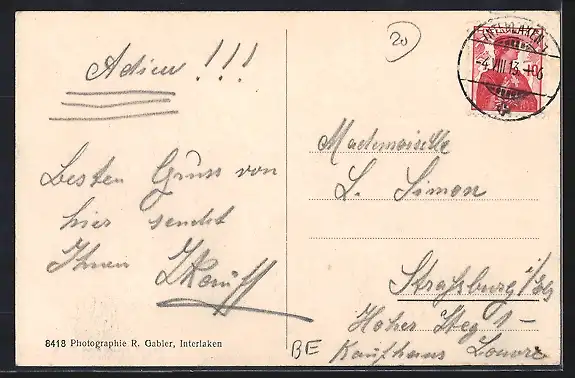 Adieu!!!
Besten Gruss von
hier sendet
Ihnen
8418 Photographie R. Gabler, Interlaken
20
INTERLAKEN 1
-4.VIII.13.-10
Mademoiselle
L. Simon
Straßburg i/Els
Hoher Steg 1-
Kaufhaus Louvre
BE